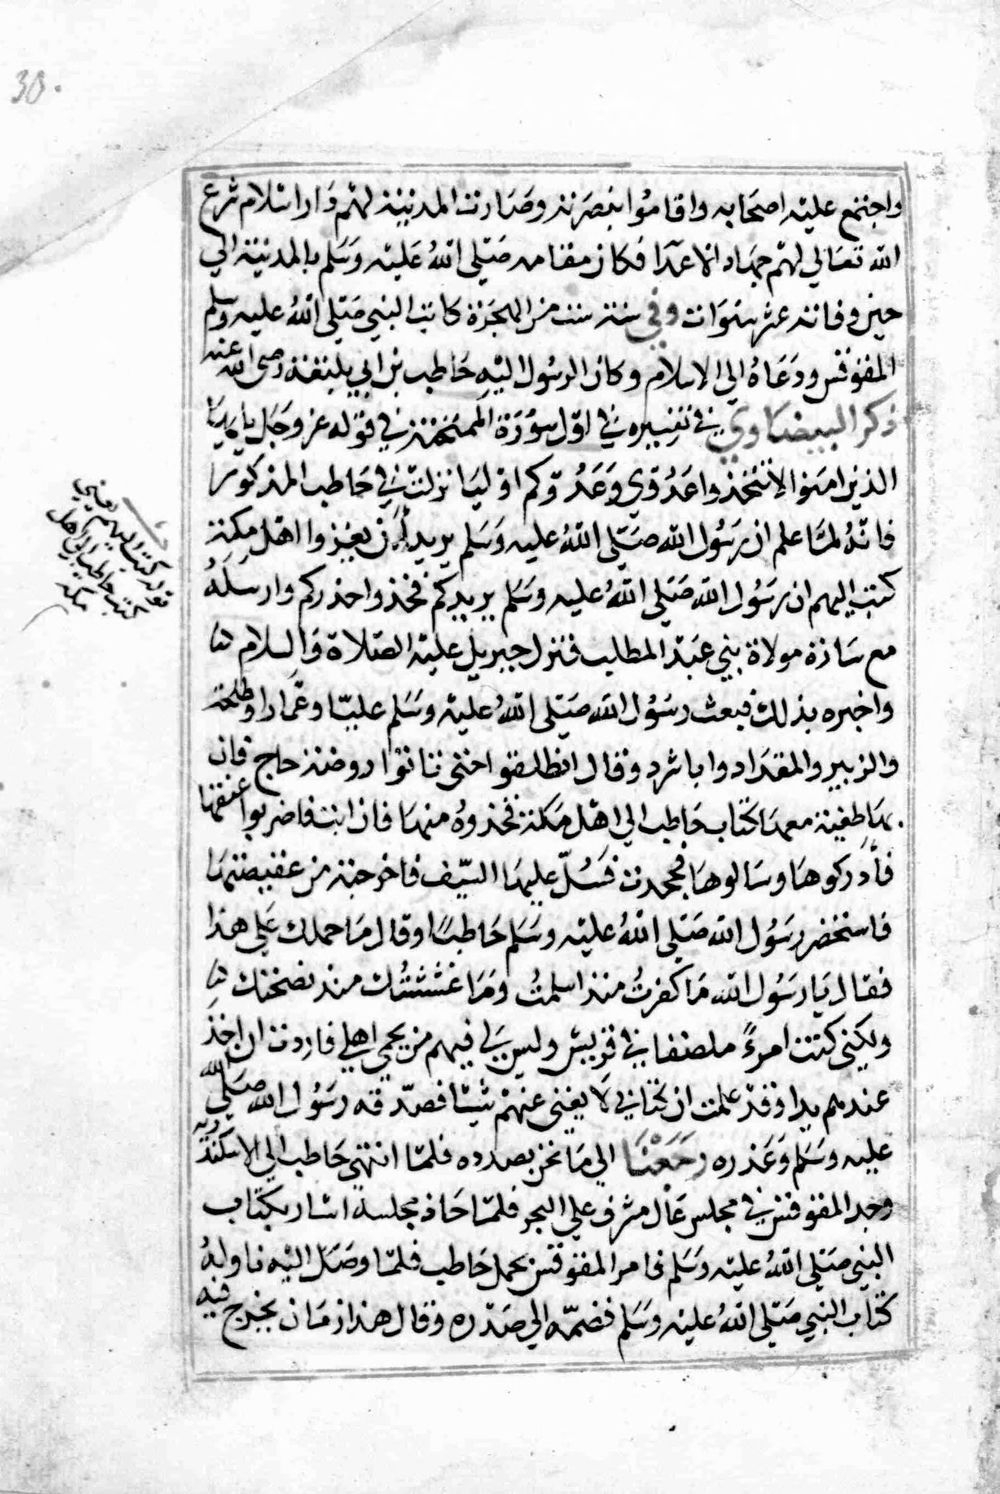 30.
واجتمع عليه اصحابه واقاموا بنصرته وصارت المدينة لهم دار اسلام شرع
الله تعالى لهم جهاد الاعدا فكان مقامه صلى الله عليه وسلم بالمدينة الي
حين وفاته عشر سنوات وفي سنة ست من الهجرة كاتب النبي صلى الله عليه وسلم
المقوقس ودعاه الي الاسلام وكان الرسول اليه حاطب بن ابي بلتعة رضى الله عنه
ذكر البيضاوي في تفسيره في اول سورة الممتحنة في قوله عز وجل يا ايها
الذين امنوا لا تتخذوا عدوي وعدوكم اوليا نزلت في حاطب المذكور
فانه لما علم ان رسول الله صلى الله عليه وسلم يريد ان يغزوا اهل مكة
كتب اليهم ان رسول الله صلى الله عليه وسلم يريدكم فخذوا حذركم وارسله
مع سارة مولاة بني عبد المطلب فنزل جبريل عليه الصلاة والسلام
واخبره بذلك فبعث رسول الله صلى الله عليه وسلم عليا وعمارا وطلحة
والزبير والمقداد وابا مرثد وقال انطلقوا حتى تاتوا روضة حاج فان
بها ظعينة معها كتاب حاطب الي اهل مكة فخذوه منها فان ابت فاضربوا عنقها
فادركوها وسالوها فجحدت فسل عليها السيف فاخرجته من عقيصتها
فاستحضر رسول الله صلى الله عليه وسلم حاطبا وقال ما حملك على هذا
فقال يا رسول الله ما كفرت منذ اسلمت وما غششتك منذ نصحتك
ولكني كنت امرءً ملصقا في قريش وليس لي فيهم من يحمي اهلي فاردت ان اخذ
عندهم يدا وقد علمت ان كتابي لا يغني عنهم شيئا فصدقه رسول الله صلى الله
عليه وسلم وعذره رجعنا الي ما نحن بصدده فلما انتهى حاطب الي الاسكندرية
وجد المقوقس في مجلس عال مشرف علي البحر فلما حاذ مجلسه اشار بكتاب
النبي صلى الله عليه وسلم فامر المقوقس بحمل حاطب فلما وصل اليه ناوله
كتاب النبي صلى الله عليه وسلم فضمه الي صدره وقال هذا زمان يخرج فيه
قوله كتب اليهم يعني
كتب حاطب الي اهل
مكة